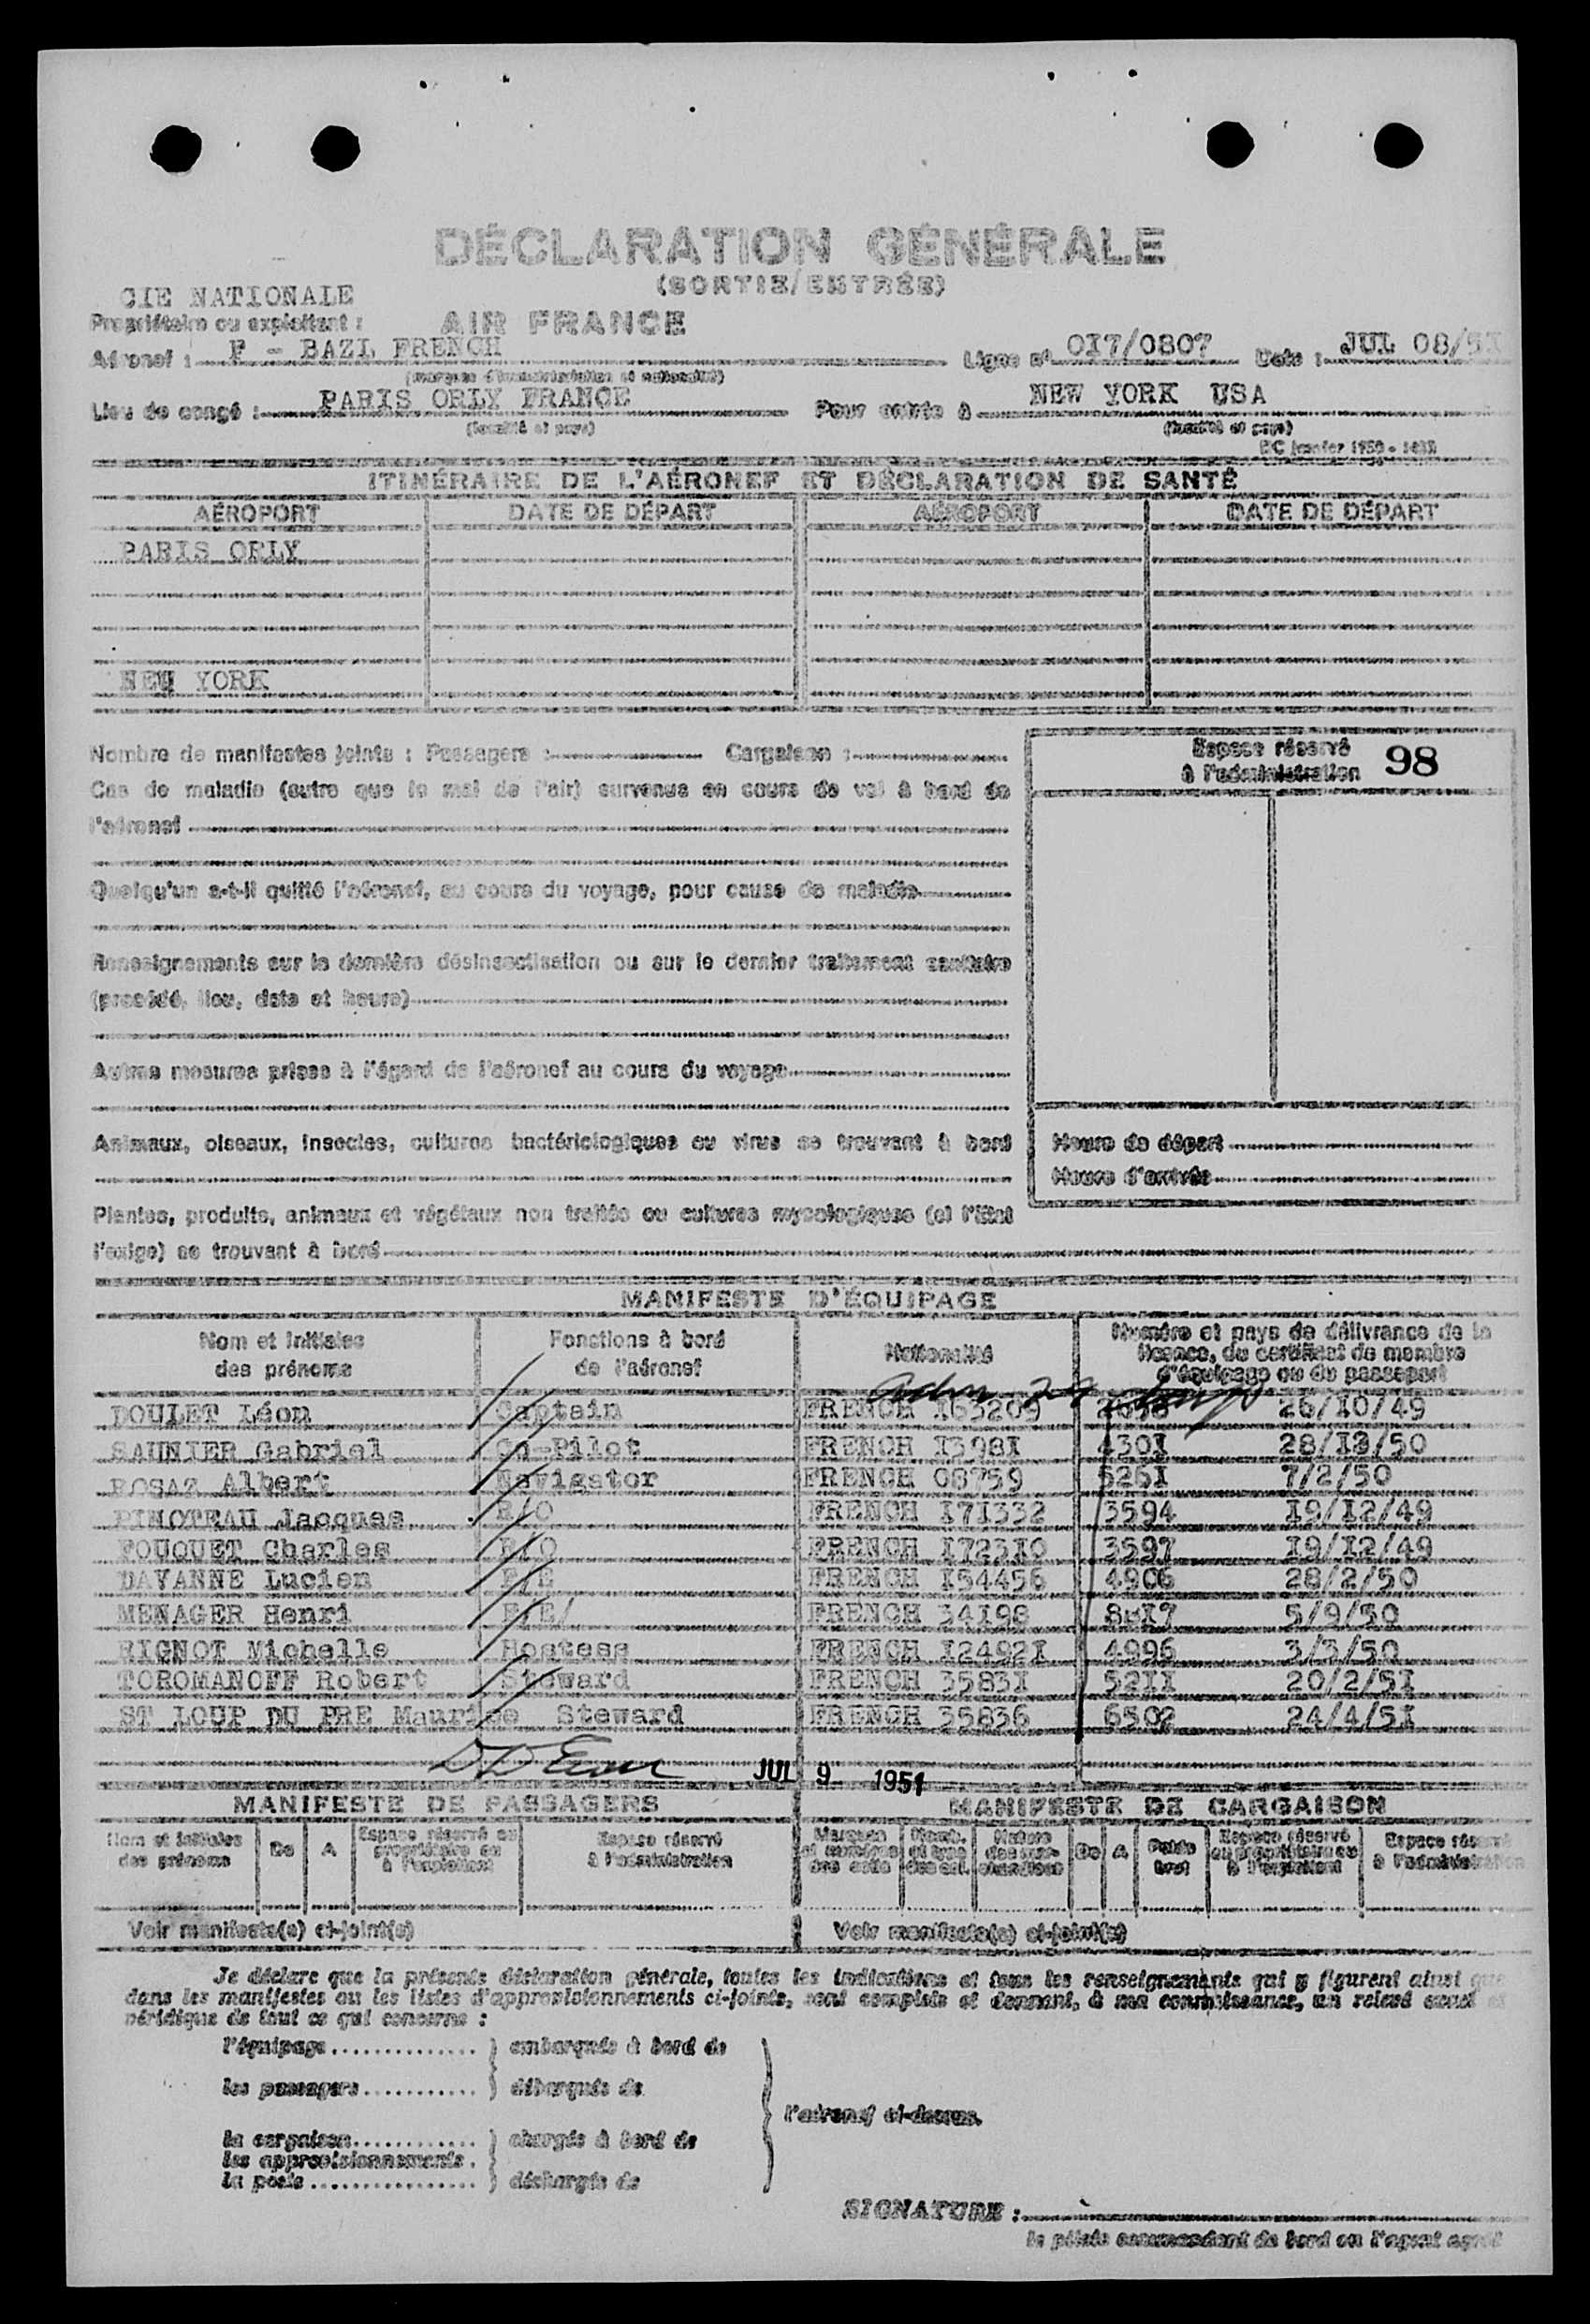 DÉCLARATION GÉNÉRALE
(SORTIE/ENTRÉE)
CIE NATIONALE
Propriétaire ou exploitant : AIR FRANCE
Aéronef : F - BAZL FRENCH Ligne nº OI7/0807 Date : JUL 08/5I
(marques d'immatriculation et nationalité)
Lieu de congé : PARIS ORLY FRANCE Pour entrée à NEW YORK USA
(localité et pays) (localité et pays)
ITINÉRAIRE DE L'AÉRONEF ET DÉCLARATION DE SANTÉ
AÉROPORT DATE DE DÉPART AÉROPORT DATE DE DÉPART
PARIS ORLY
NEW YORK
Nombre de manifestes joints : Passagers : Cargaison :
Espace réservé
à l'administration 98
Cas de maladie (autre que le mal de l'air) survenus en cours de vol à bord de
l'aéronef
Quelqu'un a-t-il quitté l'aéronef, au cours du voyage, pour cause de maladie
Renseignements sur la dernière désinsectisation ou sur le dernier traitement sanitaire
(procédé, lieu, date et heure)
Autres mesures prises à l'égard de l'aéronef au cours du voyage
Animaux, oiseaux, insectes, cultures bactériologiques ou virus se trouvant à bord
Heure de départ
Heure d'arrivée
Plantes, produits, animaux et végétaux non traités ou cultures mycologiques (si l'État
l'exige) se trouvant à bord
MANIFESTE D'ÉQUIPAGE
Nom et initiales
des prénoms
Fonctions à bord
de l'aéronef
Nationalité
Numéro et pays de délivrance de la
licence, du certificat de membre
d'équipage ou du passeport
DOULET Léon Captain FRENCH I63209 26/IO/49
SAUNIER Gabriel Co-Pilot FRENCH I398I 430I 28/I2/50
ROSAZ Albert Navigator FRENCH 08759 526I 7/2/50
PINOTEAU Jacques R/O FRENCH I7I332 3594 I9/I2/49
FOUQUET Charles R/O FRENCH I723IO 3597 I9/I2/49
DAVANNE Lucien F/E FRENCH I54456 4906 28/2/50
MENAGER Henri F/E/ FRENCH 34I98 5/9/50
RIGNOT Michelle Hostess FRENCH I2492I 4996 3/3/50
TOROMANOFF Robert Steward FRENCH 3583I 52II 20/2/5I
ST LOUP DU PRE Maurice Steward FRENCH 35836 6502 24/4/5I
JUL 9 1951
MANIFESTE DE PASSAGERS MANIFESTE DE CARGAISON
Nom et initiales
des prénoms
De A
Espace réservé au
propriétaire ou
à l'exploitant
Espace réservé
à l'administration
Marques
et numéros
des colis
Nomb.
et type
des col.
Nature
des mar-
chandises
De A
Poids
brut
Espace réservé
au propriétaire ou
à l'exploitant
Espace réservé
à l'administration
Voir manifeste(s) ci-joint(s) Voir manifeste(s) ci-joint(s)
Je déclare que la présente déclaration générale, toutes les indications et tous les renseignements qui y figurent ainsi que
dans les manifestes ou les listes d'approvisionnements ci-joints, sont complets et donnent, à ma connaissance, un relevé exact et
véridique de tout ce qui concerne :
l'équipage .............. embarqués à bord de
les passagers ........... débarqués de
l'aéronef ci-dessus.
la cargaison ............ chargés à bord de
les approvisionnements .
la poste ................ déchargés de
SIGNATURE :
le pilote commandant de bord ou l'agent agréé